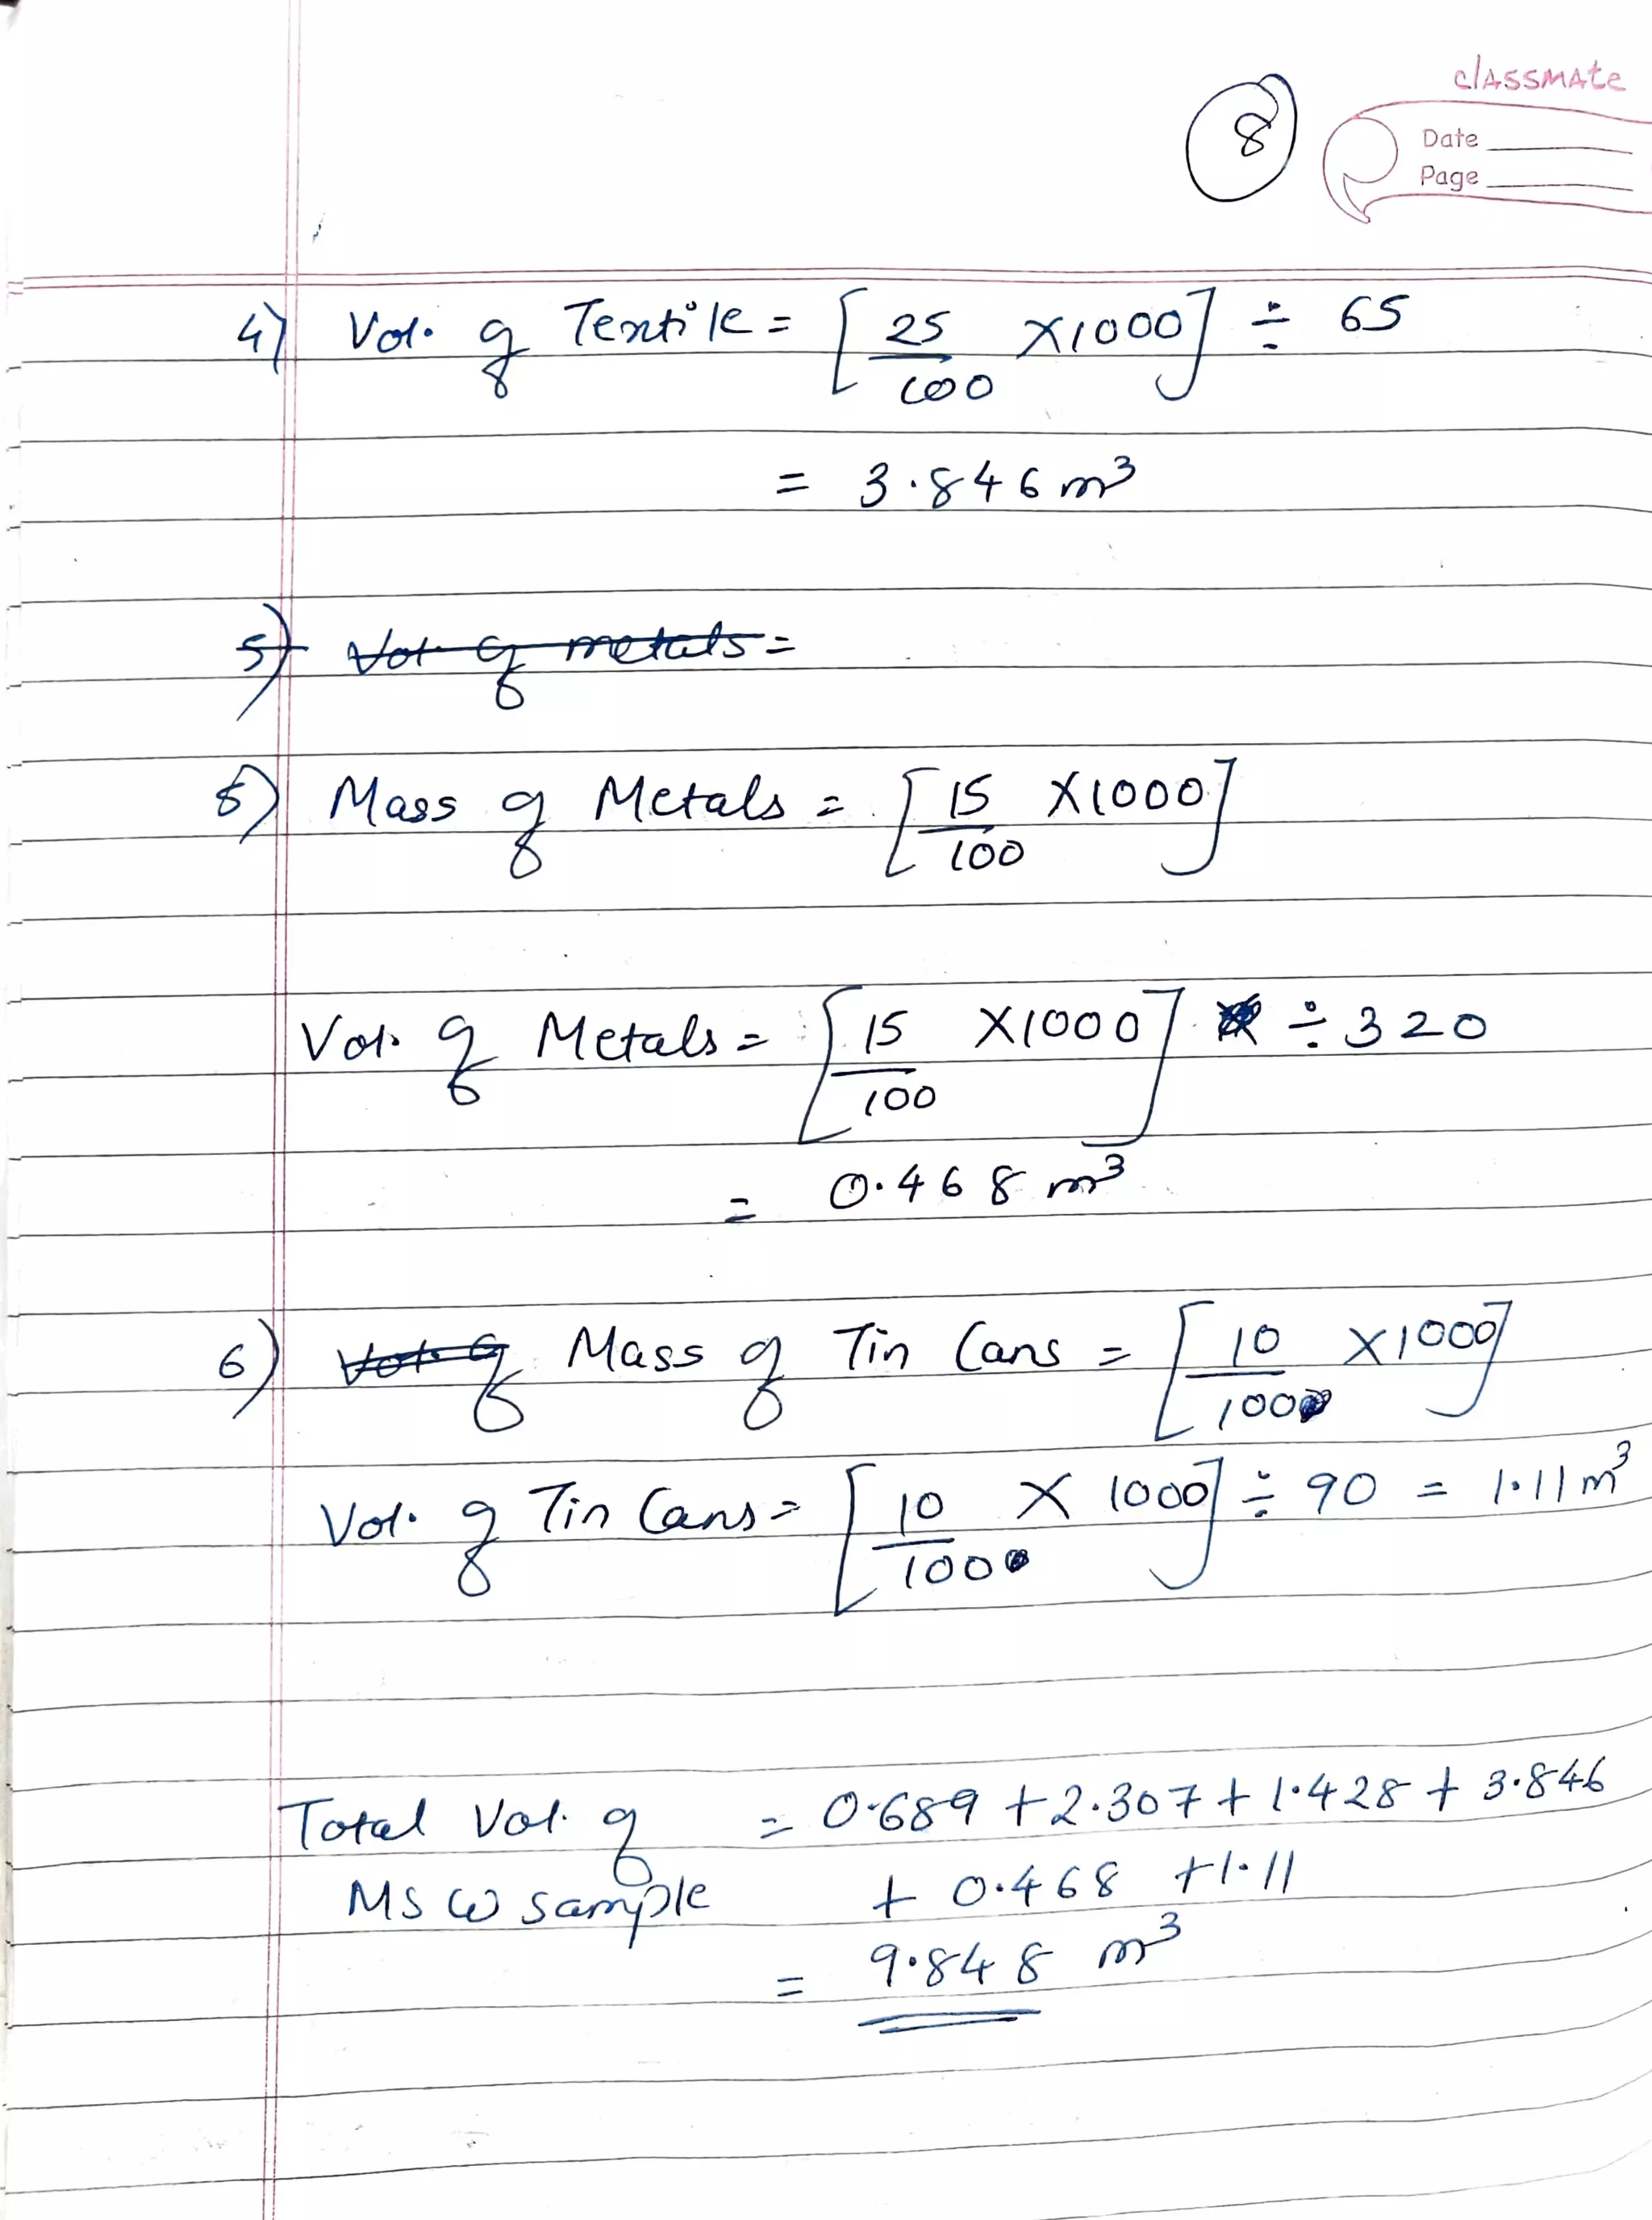 classmate
Date
Page
8
4) Vol. of Textile = [25/100 X1000] ÷ 65
= 3.846 m³
5) Vol. of metals =
5) Mass of Metals = [15/100 X1000]
Vol. of Metals = [15/100 X1000] ÷ 320
= 0.468 m³
6) Vol. of Mass of Tin Cans = [10/100 X1000]
Vol. of Tin Cans = [10/100 X 1000] ÷ 90 = 1.11 m³
Total Vol. of = 0.689 + 2.307 + 1.428 + 3.846
MSW sample + 0.468 + 1.11
= 9.848 m³